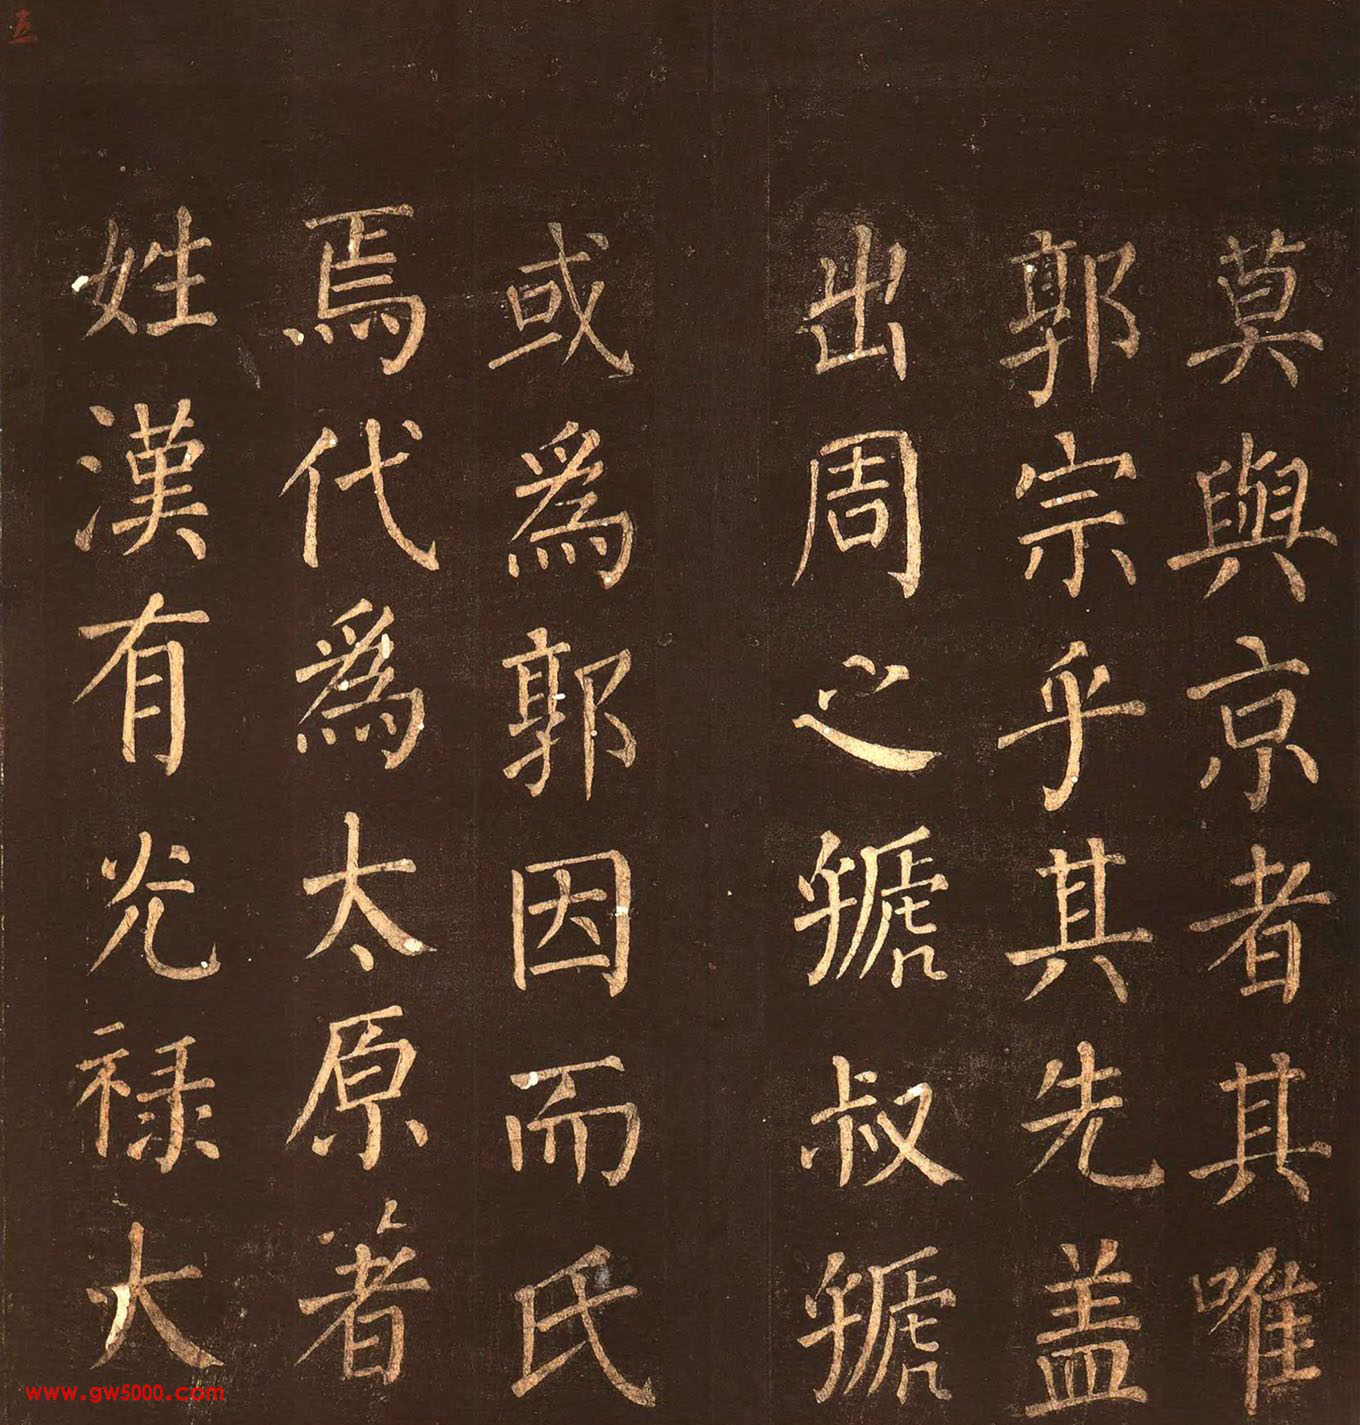 莫與京者其唯
郭宗乎其先盖
出周之虢叔虢
或爲郭因而氏
焉代爲太原著
姓漢有光禄大
www.gw5000.com